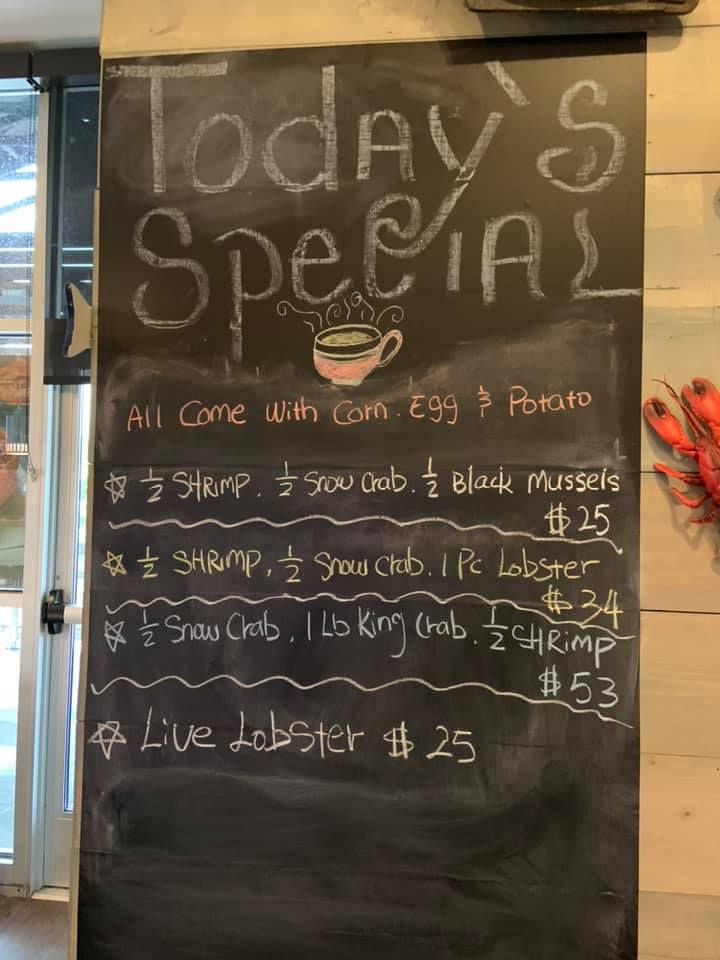 Today's
Special
All Come With Corn. Egg & Potato
☆ 1/2 SHRIMP. 1/2 Snow Crab. 1/2 Black Mussels
$25
☆ 1/2 SHRIMP, 1/2 Snow Crab. 1 Pc Lobster
$34
☆ 1/2 Snow Crab, 1 Lb King Crab. 1/2 SHRIMP
$53
☆ Live Lobster $25